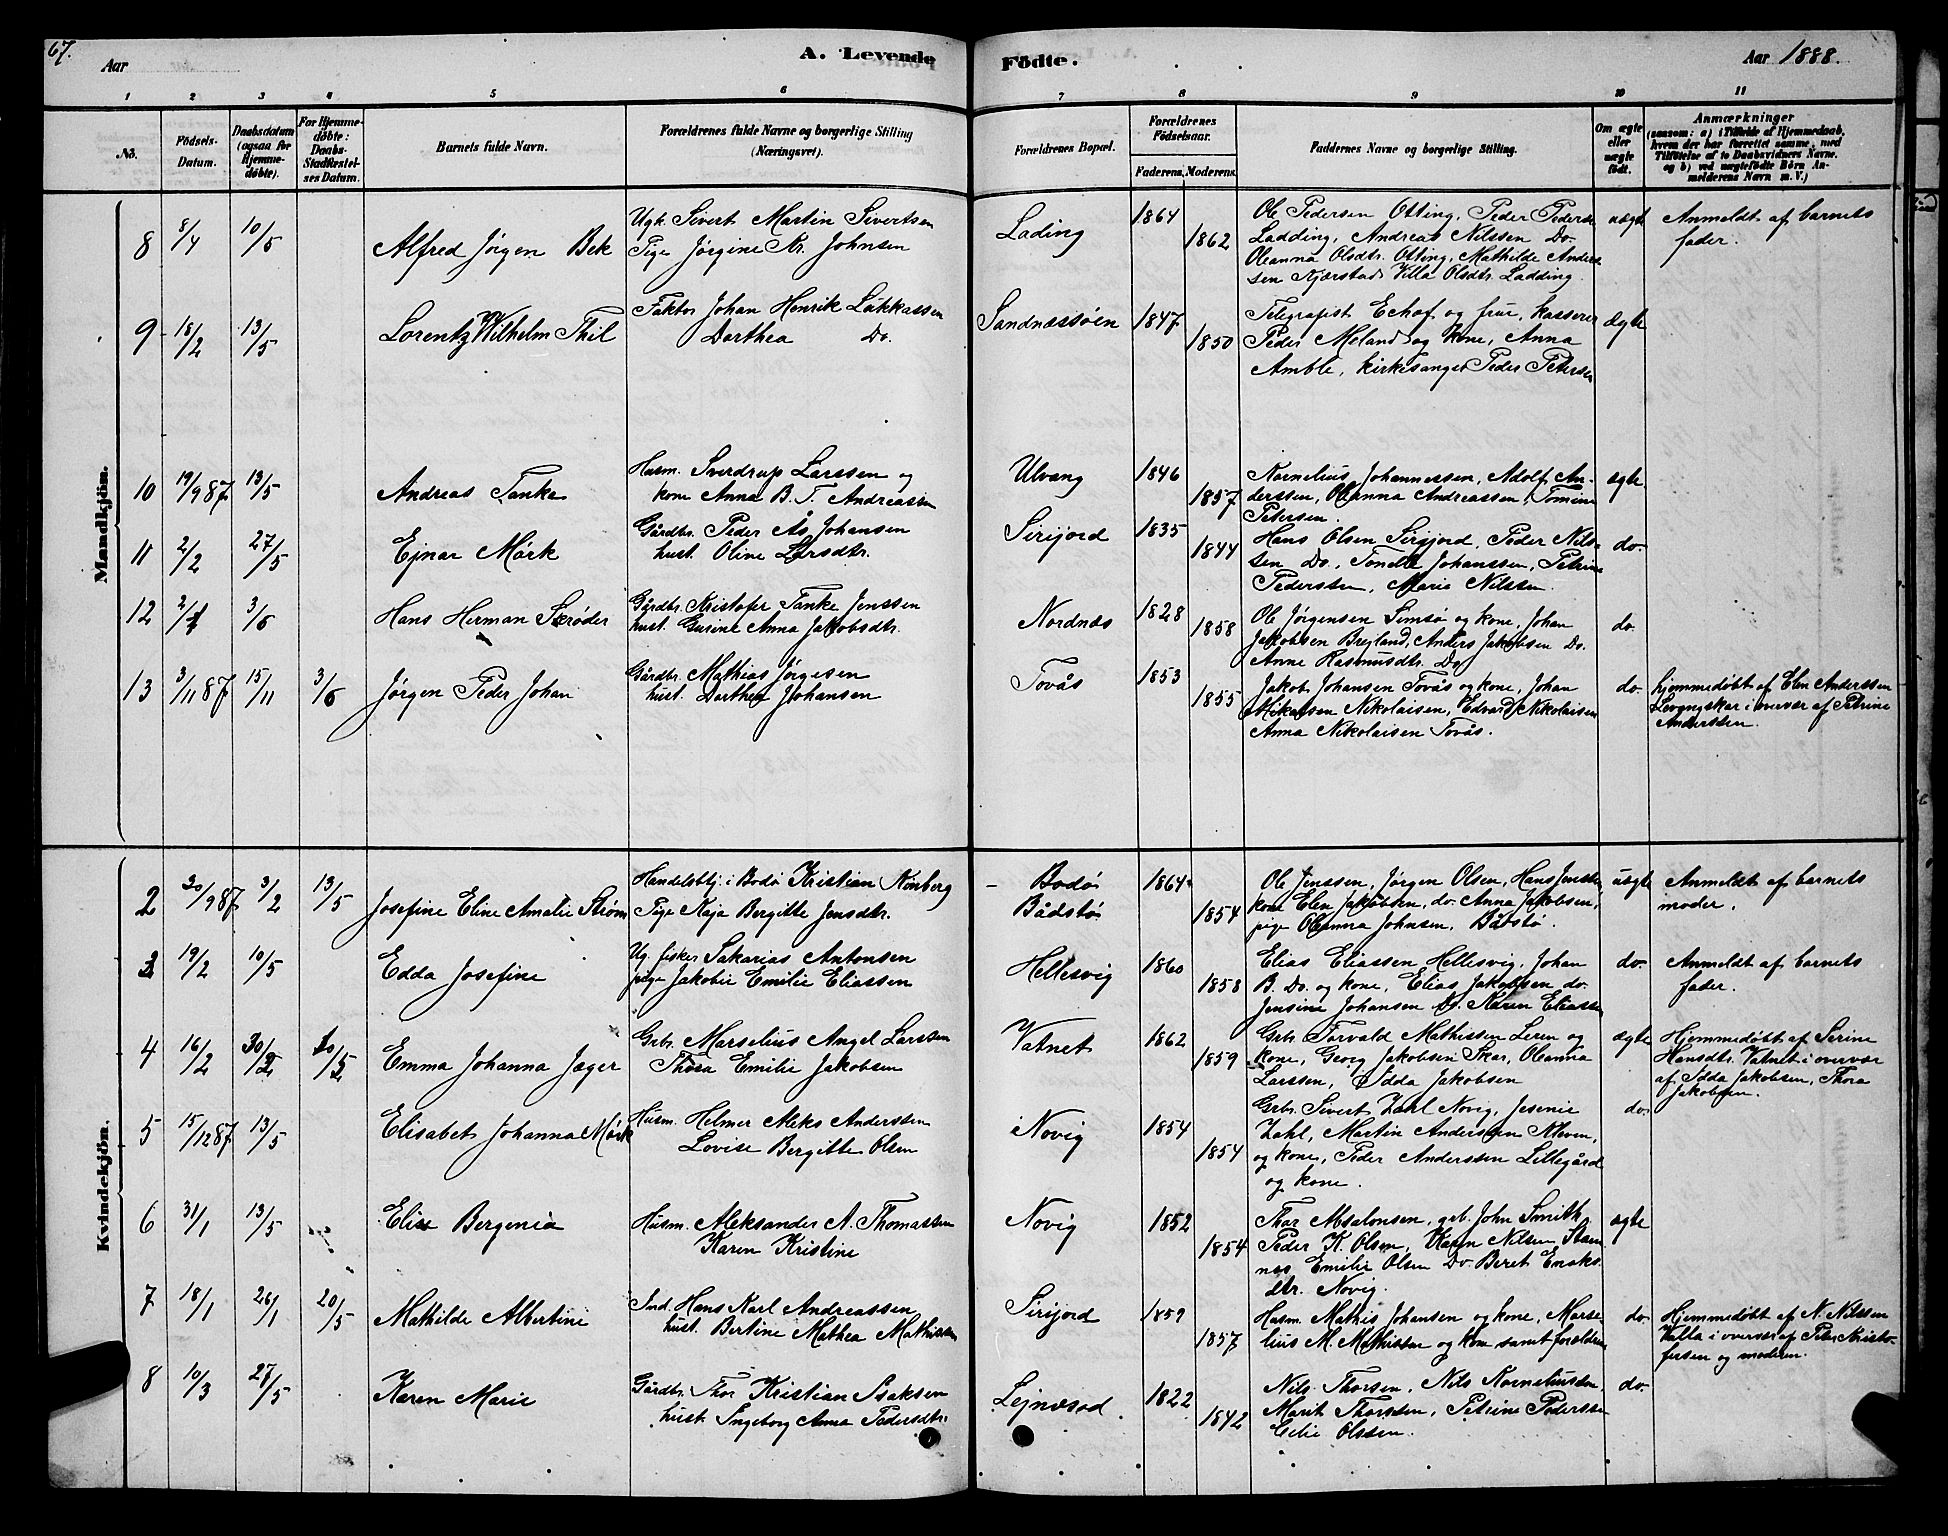 67.
Aar
A. Levende
Födte.
Aar 1888.
1 2 3 4 5 6 7 8 9 10 11
No.
Födsels-Datum.
Daabsdatum (ogsaa for Hjemmedöbte).
For Hjemmedøbte: Daabs-Stadfæstelses Datum.
Barnets fulde Navn.
Forældrenes fulde Navne og borgerlige Stilling (Næringsvei).
Forældrenes Bopæl.
Forældrenes Födselsaar.
Faderens. Moderens.
Faddernes Navne og borgerlige Stilling.
Om ægte eller uægte födt.
Anmærkninger
(saasom: a) i Tilfælde af Hjemmedaab, hvem der har forrettet samme, med Tilføielse af to Daabsvidners Navne, og b) ved uægtefødte Börn Anmelderens Navn m. V.)
Mandkjön.
8 8/4 10/5 Alfred Jørgen Bek
Ugk. Sivert Martin Sivertsen
Pige Jørgine Kr. Johnsen
Lading 1864 1862
Ole Pedersen Otting, Peder Peders
Ladding, Andreas Nilssen Do.
Oleanna Olsdtr. Otting, Mathilde Anders
sen Kjærstad Villa Olsdtr. Ladding.
uægte
Anmeldt af barnets
fader.
9 18/2 13/5 Lorentz Wilhelm Thil
Faktor Johan Henrik Lükkassen
Dorthea Do.
Sandnæssöen 1847 1850
Telegrafist Echof og frue, kasserer
Peder Meland og kone, Anna
Amble, kirkesanger Peder Petersen
Ægte
10 19/9 87 13/5 Andreas Tanke
Husm. Sverdrup Larssen og
kone Anna B. T. Andreassen
Ulvang 1846 1857
Kornelius Johannessen, Adolf An-
derssen, Oleanna Andreassen, Tomine
Petersen.
ægte
11 2/2 27/5 Ejnar Mørk
Gårdbr. Peder Ås Johansen
hust. Oline Larsdtr.
Sirijord 1835 1844
Hans Olsen Sirijord, Peder Nils-
sen Do, Tonette Johanssen, Petrine
Pederssen, Marie Nilssen.
do.
12 3/6 Hans Herman Skrøder
Gårdbr. Kristofer Tanke Jenssen
hust. Gurine Anna Jakobsdtr.
Nordnæs 1828 1858
Ole Jørgensen Simsø og kone, Johan
Jakobsen Brejland, Anders Jakobsen Do.
Anne Rasmusdtr. Do
do.
13 3/11 87 15/11 3/6 Jørgen Peder Johan
Gårdbr. Mathias Jørgesen
hust. Dorthea Johansen
Tovås 1853 1855
Jakob Johansen Tovås og kone, Johan
Mikalsen Nikolaisen, Edvard Nikolaisen
Anna Nikolaisen Tovås.
do.
hjemmedøbt af Elen Anderssen
Levangskar i overvær af Petrine
Anderssen.
Kvindekjön.
2 30/9 87 3/2 13/5 Josefine Eline Amalie Strøm
Handelsbtj. i Bodø Kristian Nonberg
Pige Kaja Bergitte Jensdtr.
Bodø
Bådstø 1864 1854
Ole Jenssen, Jørgen Olsen, Hans Jenssen
kone Elen Jakobsen, do. Anna Jakobsen,
pige Oleanna Johnsen, Bådstø.
uægte
Anmeldt af barnets
moder.
3 19/2 10/5 Edda Josefine
Ug. fisker Sakarias Antonsen
pige Jakobie Emilie Eliassen
Hellesvig 1860 1858
Elias Eliassen Hellesvig, Johan
B. Do. og kone, Elias Jakobsen do.
Jensine Johansen Do. Karen Eliassen
do.
Anmeldt af barnets
fader.
4 16/2 Emma Johanna Jæger
Grbr. Marselius Angel Larssen
Thosa Emilie Jakobsen
Vatnet 1862 1859
Grbr. Torvald Mathissen Leren og
kone, Georg Jakobsen Skar, Oleanna
Larssen, Edda Jakobsen
ægte
Hjemmedøbt af Serine
Hansdtr. Vatnet i overvær
af Edda Jakobsen, Thora
Jakobsen.
5 15/12 87 13/5 Elisabet Johanna Mørk
Husm. Helmer Meks Anderssen
Lovise Bergitte Olsen
Novig 1854 1854
Grbr. Sivert Zahl Novig, Jesenie
Zahl, Martin Anderssen Kleven,
og kone, Peder Anderssen Lillegård
og kone.
do.
6 31/1 13/5 Elise Bergenia
Husm. Aleksander A. Thomassen
Karen Kristine
Novig 1852 1854
Thor Absalonsen, grb. John Smith,
Peder K. Olsen, Karen Nilsen Stam-
nes Emilie Olsen Do. Beret Enoks
dtr. Novig.
ægte
7 18/1 26/1 20/5 Mathilde Albertine
Ind. Hans Karl Andreassen
hust. Bertine Mathea Mathissen
Sirijord 1859 1857
Husm. Mathis Johansen og kone, Marse-
lius M. Mathissen og kone samt forældrene
do.
Hjemmedøbt af N. Nilssen
Valla i overvær af Peter Kristo-
fersen og moderen.
8 10/3 27/5 Karen Marie
Gårdbr. Thor Kristian Isaksen
hust. Ingeborg Anna Pedersdtr.
Lejnesod 1822 1842
Nils Thorsen, Nils Kornelius­sen,
Marit Thorssen, Petrine Pederssen
Celie Olssen.
do.